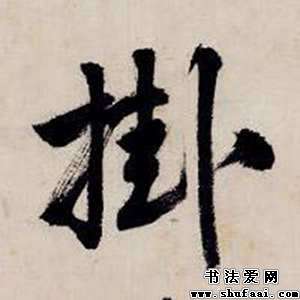 掛
书法爱网
www.shufaai.com